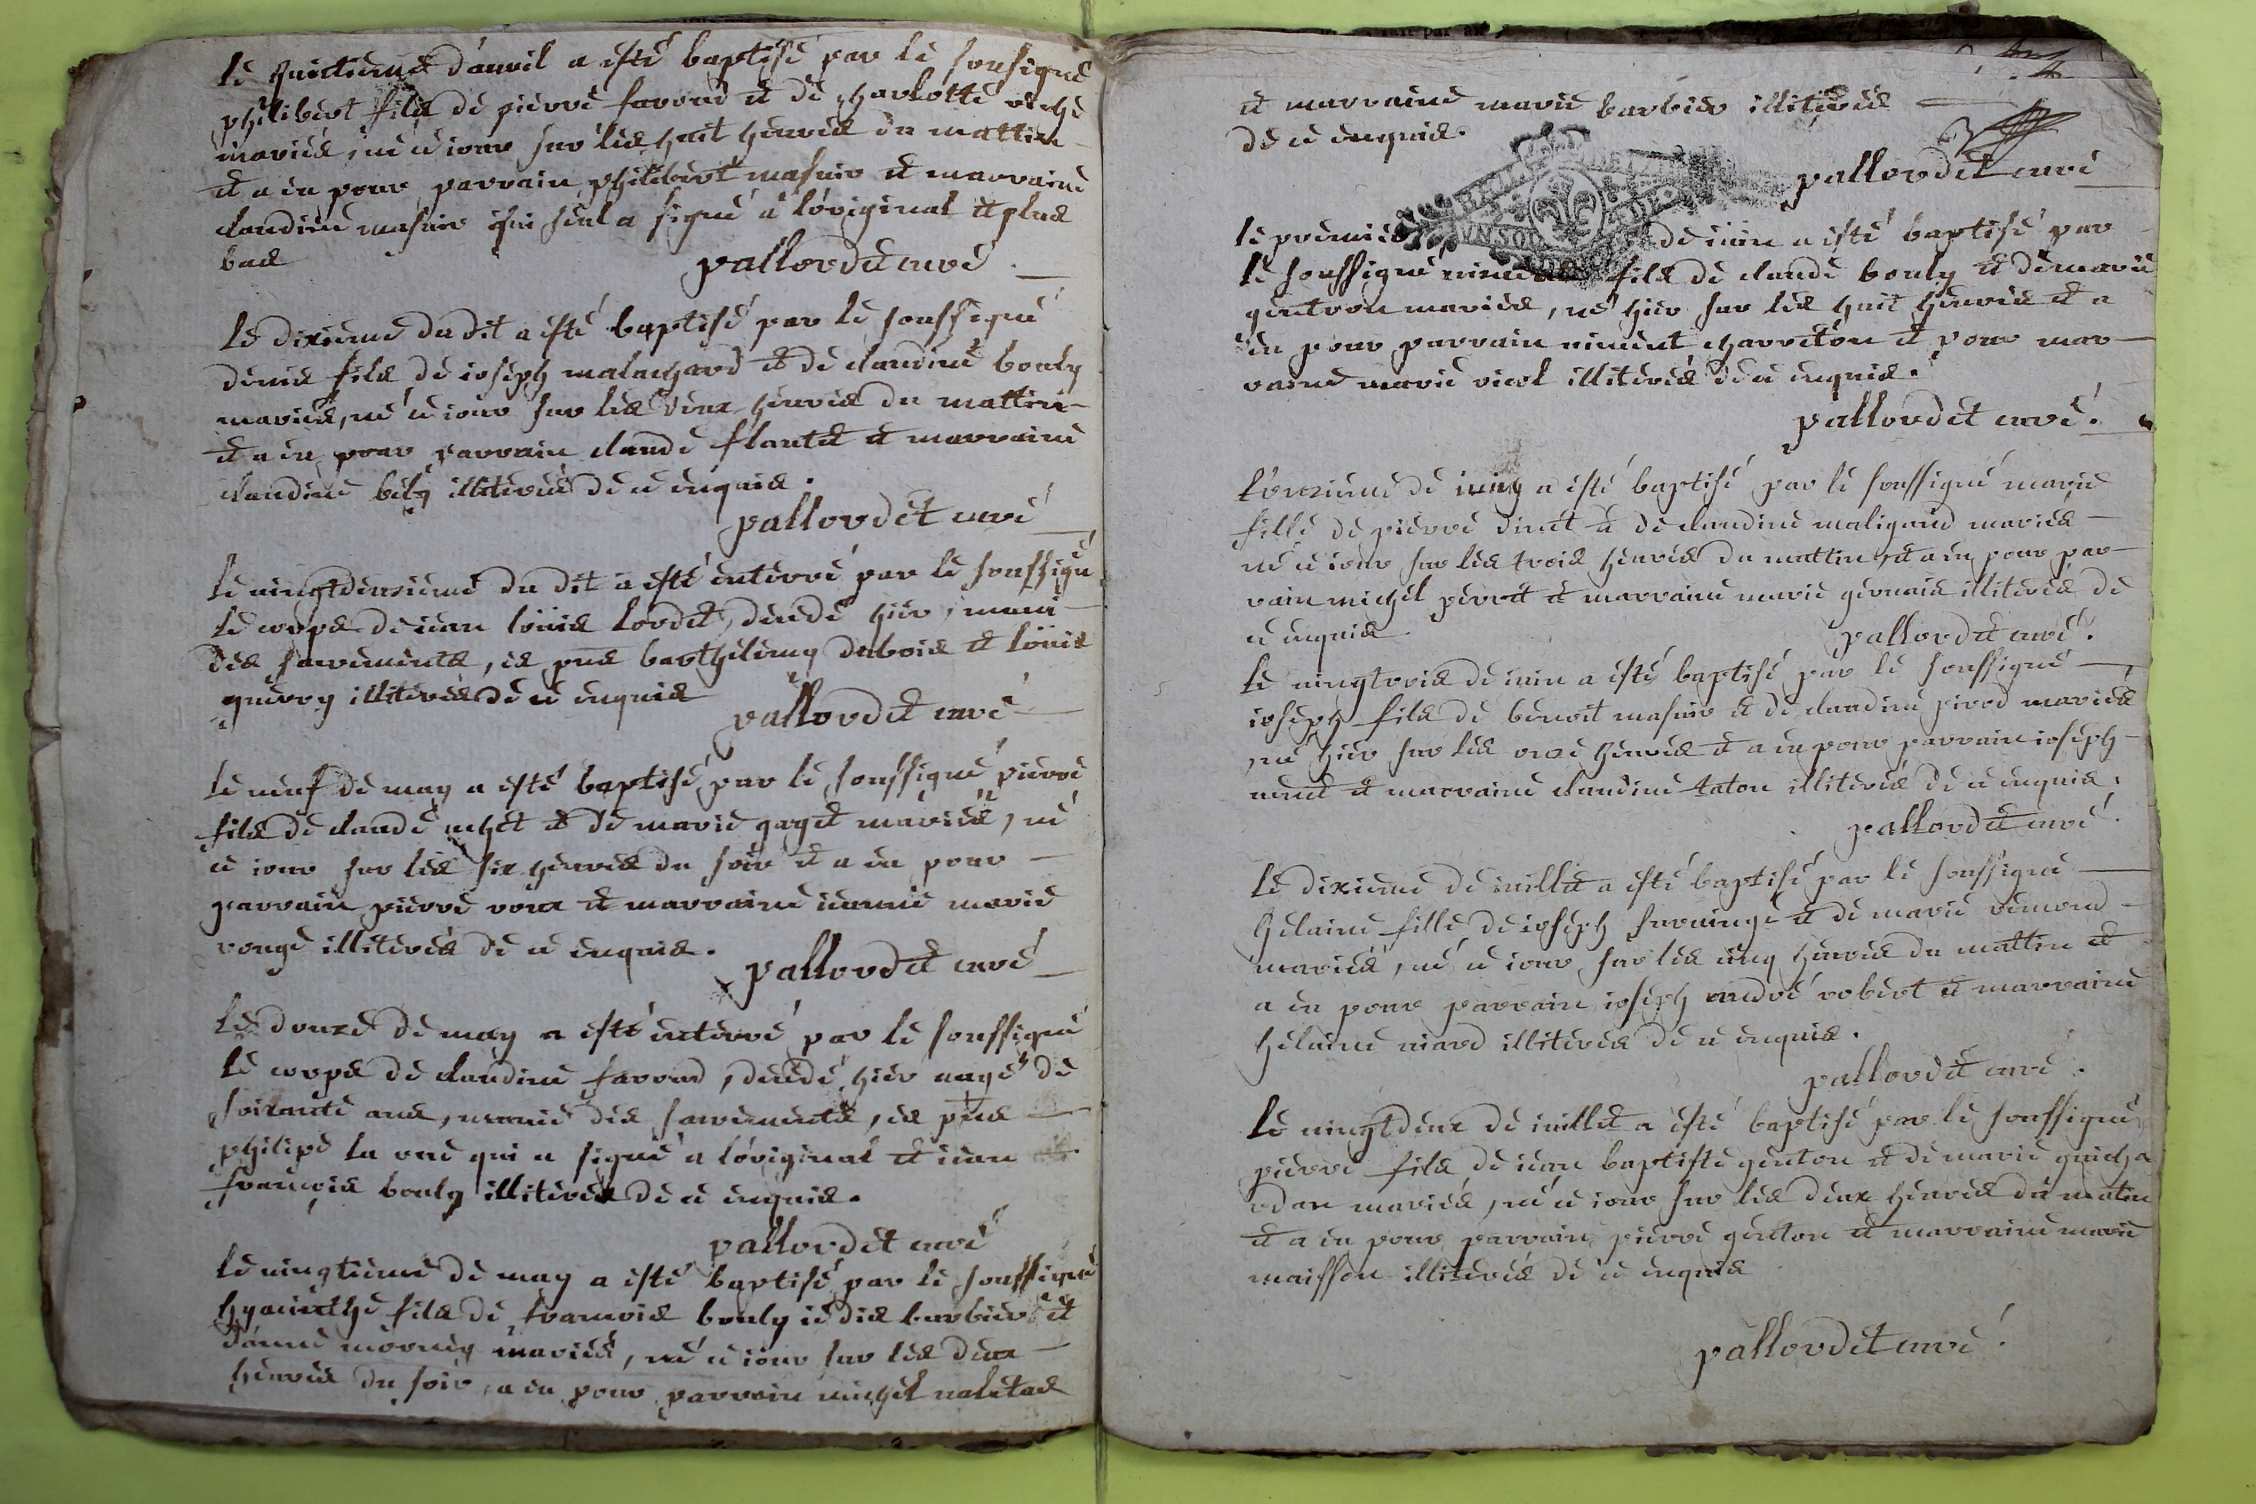 le huitieme dauril a esté baptisé par le sousigné
philibert fils de pierre favrod et de charlotte
mariés, né ce iour sur les huit heures du mattin
et a eu pour parrain philibert masuir et marraine
claudine masuir qui seul a signé a l'original et plus
bas pallordet curé
le dixieme du dit a esté baptisé par le soussigné
denis fils de ioseph malachard et de claudine bouly
mariés, né ce iour sur les deux heures du mattin
et a eu pour parrain claude flantet et marraine
claudine bely illiterés de ce enquis.
pallordet curé
le vingtdeuxieme du dit a esté enterré par le soussigné
le corps de iean loüis lordet, decedé hier, muni
des sacrements, es pns barthelemy dubois et loüis
guerry illiterés de ce enquis pallordet curé
le neuf de may a esté baptisé par le soussigné pierre
fils de claude et de marie gaget mariés, né
ce iour sur les six heures du soir et a eu pour
parrain pierre roux et marraine ieanne marie
rouge illiterés de ce enquis. pallordet curé
le douze de may a esté enterré par le soussigné
le corps de claudine favrod, decedé hier aagé de
soixante ans, munie des sacrements, es pns
philipe la rue qui a signé a l'original et iean
francois bouly illiterés de ce enquis.
pallordet curé
le vingtieme de may a esté baptisé par le soussigné
hyacinthe fils de francois bouly barbier et
danne mariés, né ce iour sur les deux
heures du soir, a eu pour parrain michel
et marraine marie barbier illiterés
de ce enquis.
pallordet curé
le premier de iuin a esté baptisé par
le soussigné fils de claude bouly et de marie
gentron mariés, né hier sur les huit heures et a
eu pour parrain vincent charreton et pour mar
raine marie viert illiterés de ce enquis.
pallordet curé.
l'onzieme de iuin a esté baptisé par le soussigné marie
fille de pierre et de claudine maligand mariés
né ce iour sur les trois heures du mattin, et a eu pour par
rain michel perret et marraine marie gervais illiterés de
ce enquis. pallordet curé.
le vingtrois de iuin a esté baptisé par le soussigné
ioseph fils de benoit masuir et de claudine pirod mariés
né hier sur les onze heures et a eu pour parrain ioseph
et marraine claudine taton illiterés de ce enquis.
pallordet curé
le dixieme de iuillet a esté baptisé par le soussigné
helaine fille de ioseph et de marie remond
mariés, né ce iour sur les cinq heures du mattin et
a eu pour parrain ioseph andré robert et marraine
helaine viard illiterés de ce enquis.
pallordet curé.
le vingtdeux de iuillet a esté baptisé par le soussigné
pierre fils de iean baptiste genton et de marie guicha
rdan mariés, né ce iour sur les deux heures du matin
et a eu pour parrain pierre genton et marraine marie
maisson illiterés de ce enquis
pallordet curé.